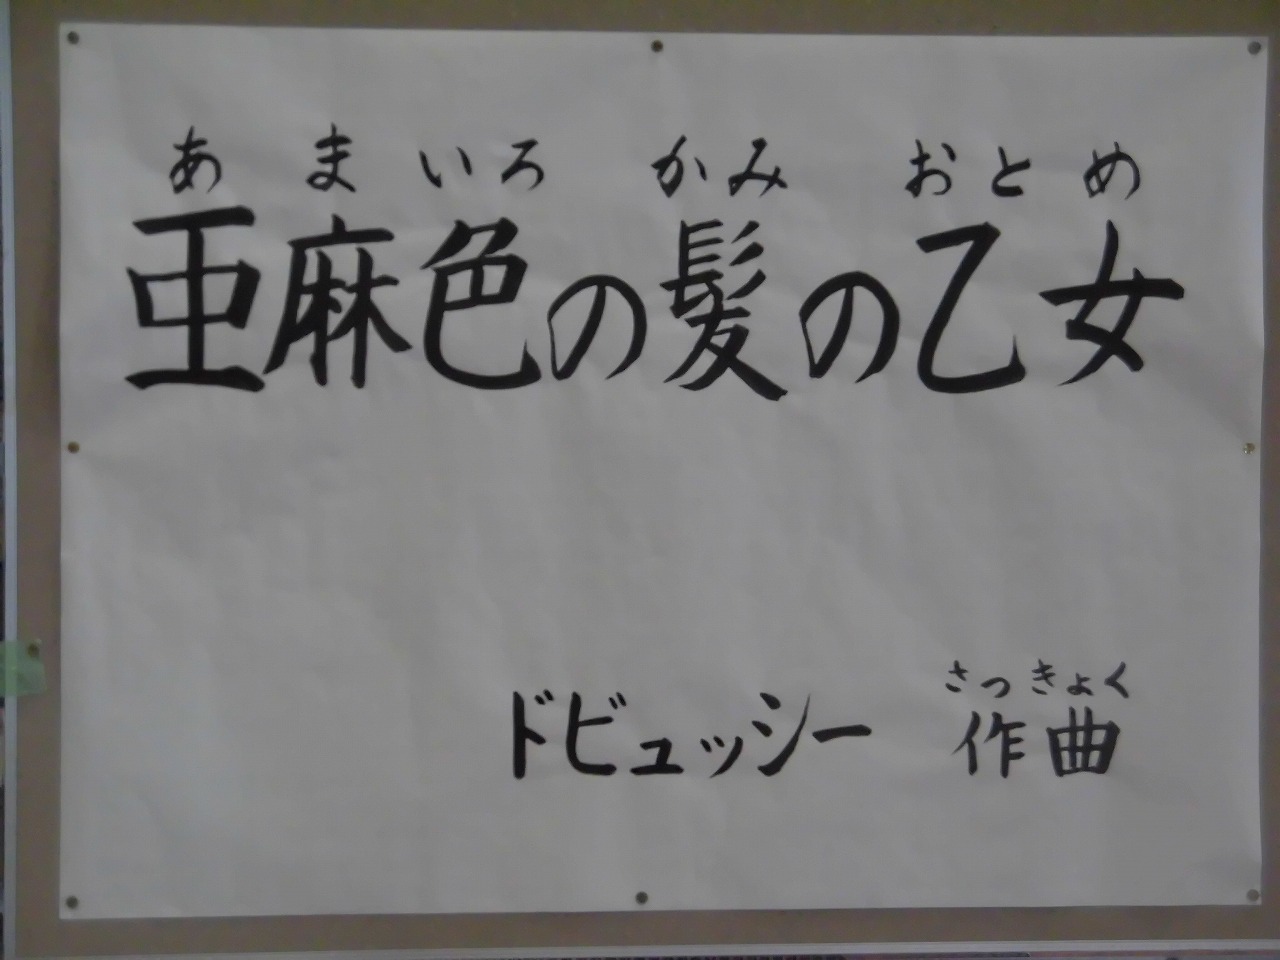 あまいろ かみ おとめ
亜麻色の髪の乙女
さっきょく
ドビュッシー 作曲